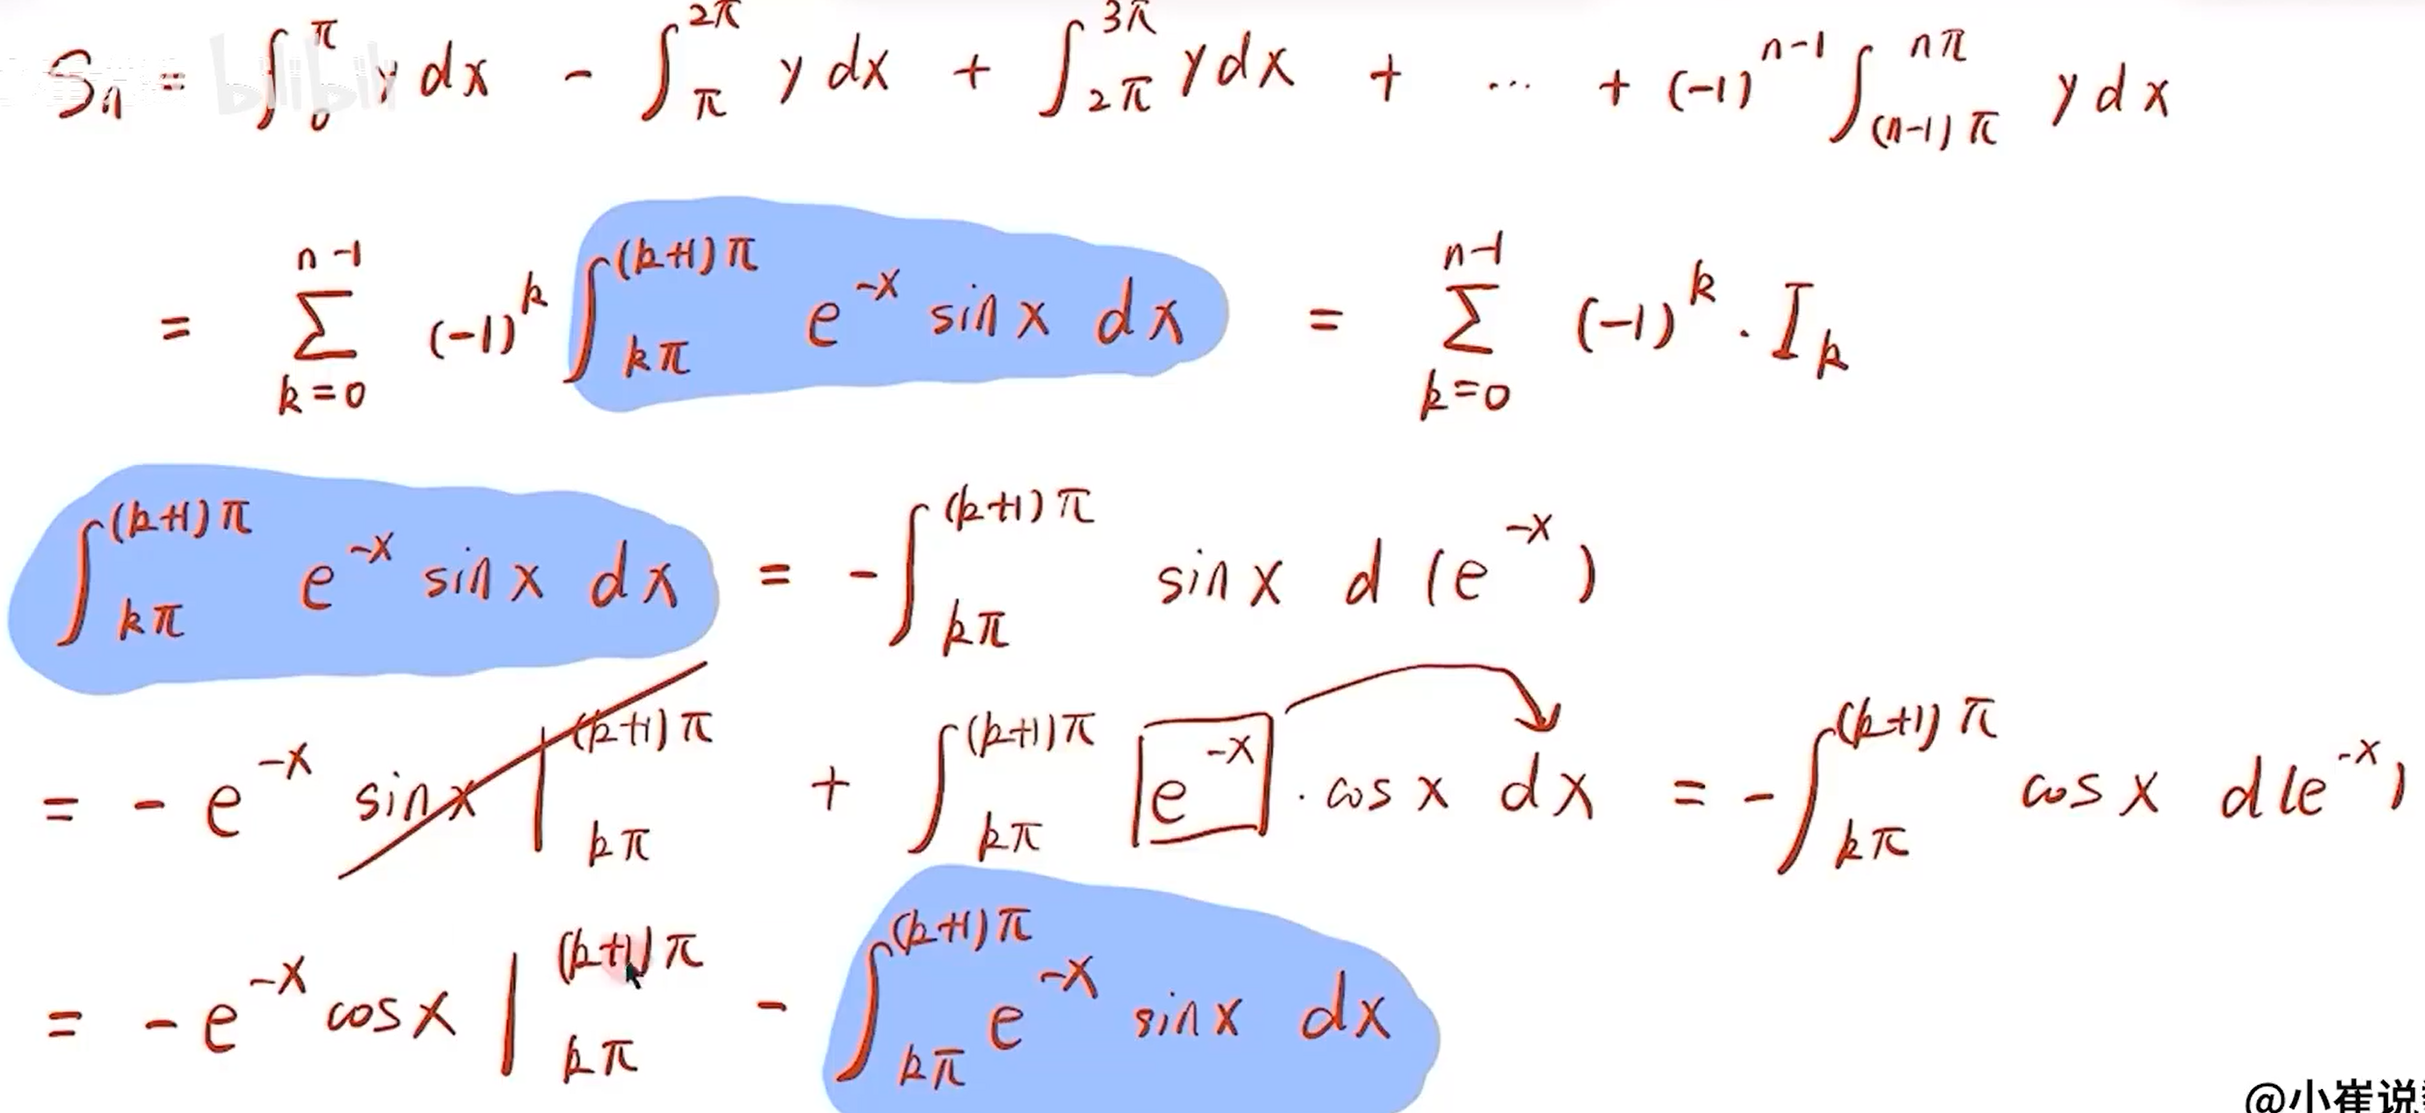 Sₙ = ∫₀^π y dx - ∫_π^{2π} y dx + ∫_{2π}^{3π} y dx + ... + (-1)^{n-1} ∫_{(n-1)π}^{nπ} y dx
bilibili
= ∑_{k=0}^{n-1} (-1)^k ∫_{kπ}^{(k+1)π} e^{-x} sin x dx = ∑_{k=0}^{n-1} (-1)^k · I_k
∫_{kπ}^{(k+1)π} e^{-x} sin x dx = -∫_{kπ}^{(k+1)π} sin x d(e^{-x})
= -e^{-x} sin x |_{kπ}^{(k+1)π} + ∫_{kπ}^{(k+1)π} e^{-x} · cos x dx = -∫_{kπ}^{(k+1)π} cos x d(e^{-x})
= -e^{-x} cos x |_{kπ}^{(k+1)π} - ∫_{kπ}^{(k+1)π} e^{-x} sin x dx
@小崔说